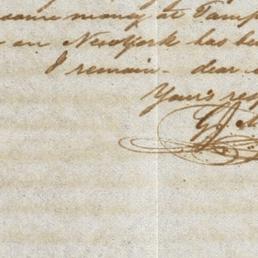 same money at Tamp
on New York has be
I remain - dear
Yours res
G